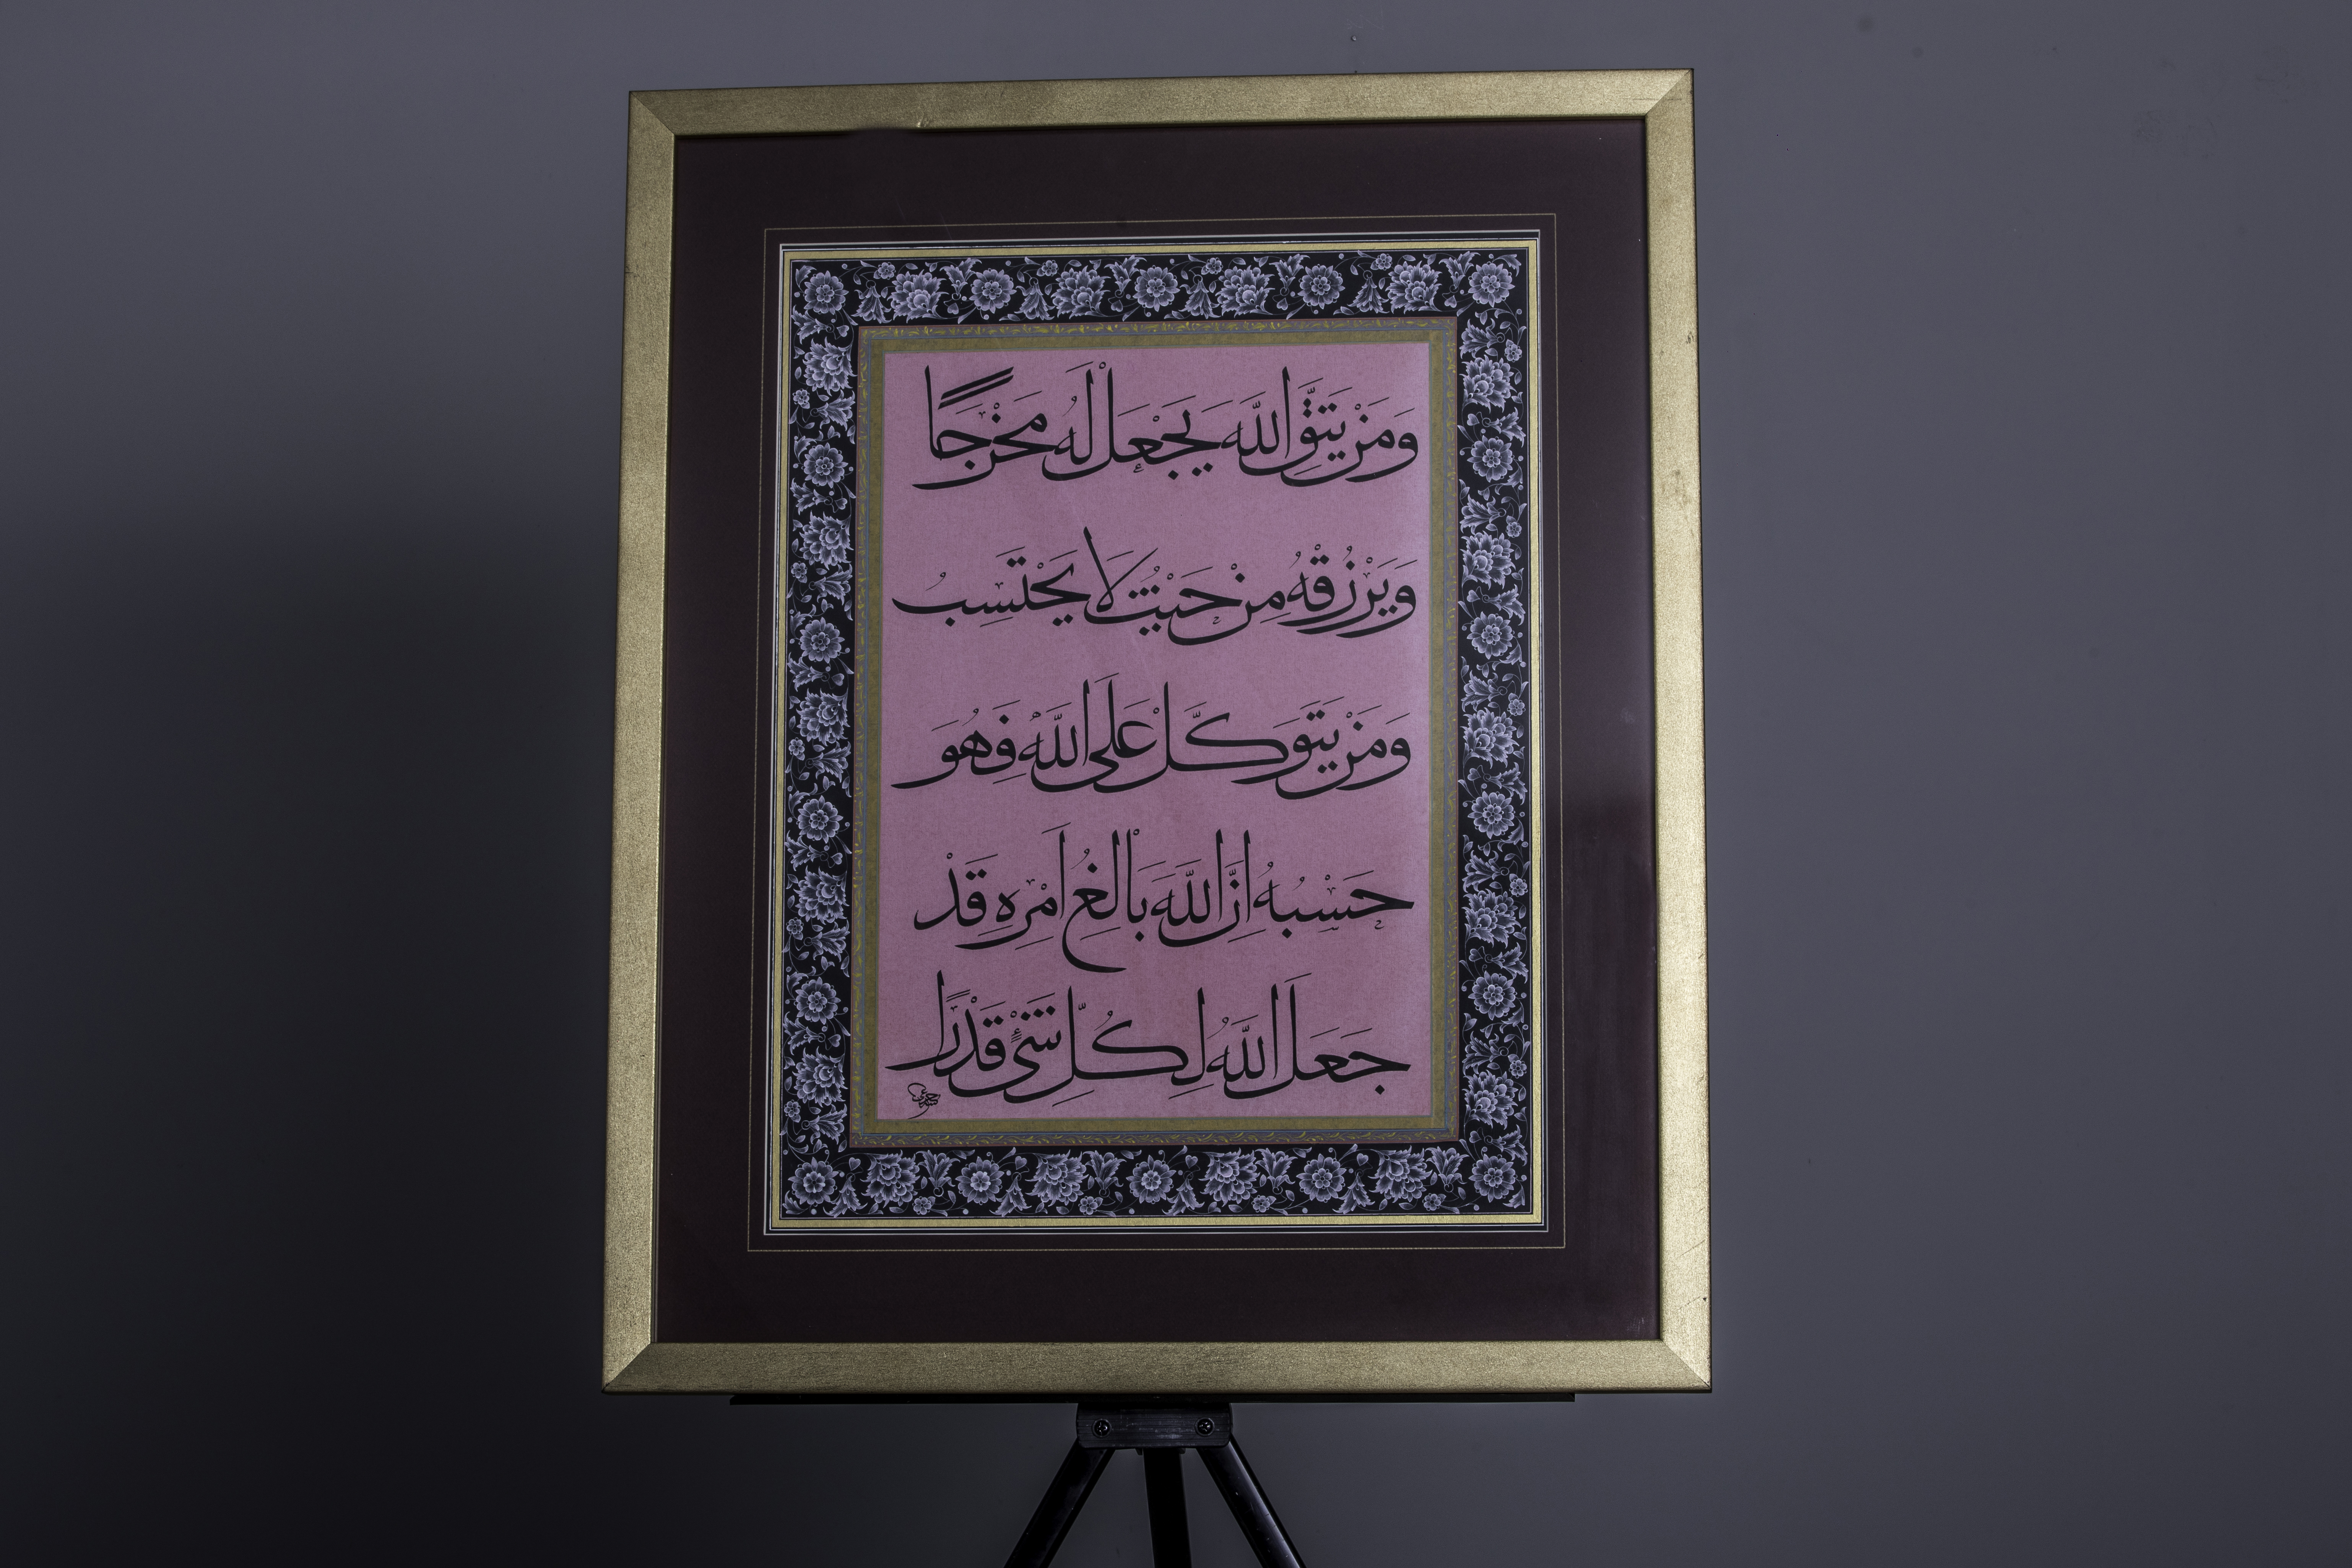 وَمَنْ يَتَّقِ اللّٰهَ يَجْعَلْ لَهُ مَخْرَجًا
وَيَرْزُقْهُ مِنْ حَيْثُ لَا يَحْتَسِبُ
وَمَنْ يَتَوَكَّلْ عَلَى اللّٰهِ فَهُوَ
حَسْبُهُ اِنَّ اللّٰهَ بَالِغُ اَمْرِهِ قَدْ
جَعَلَ اللّٰهُ لِكُلِّ شَىْءٍ قَدْرًا